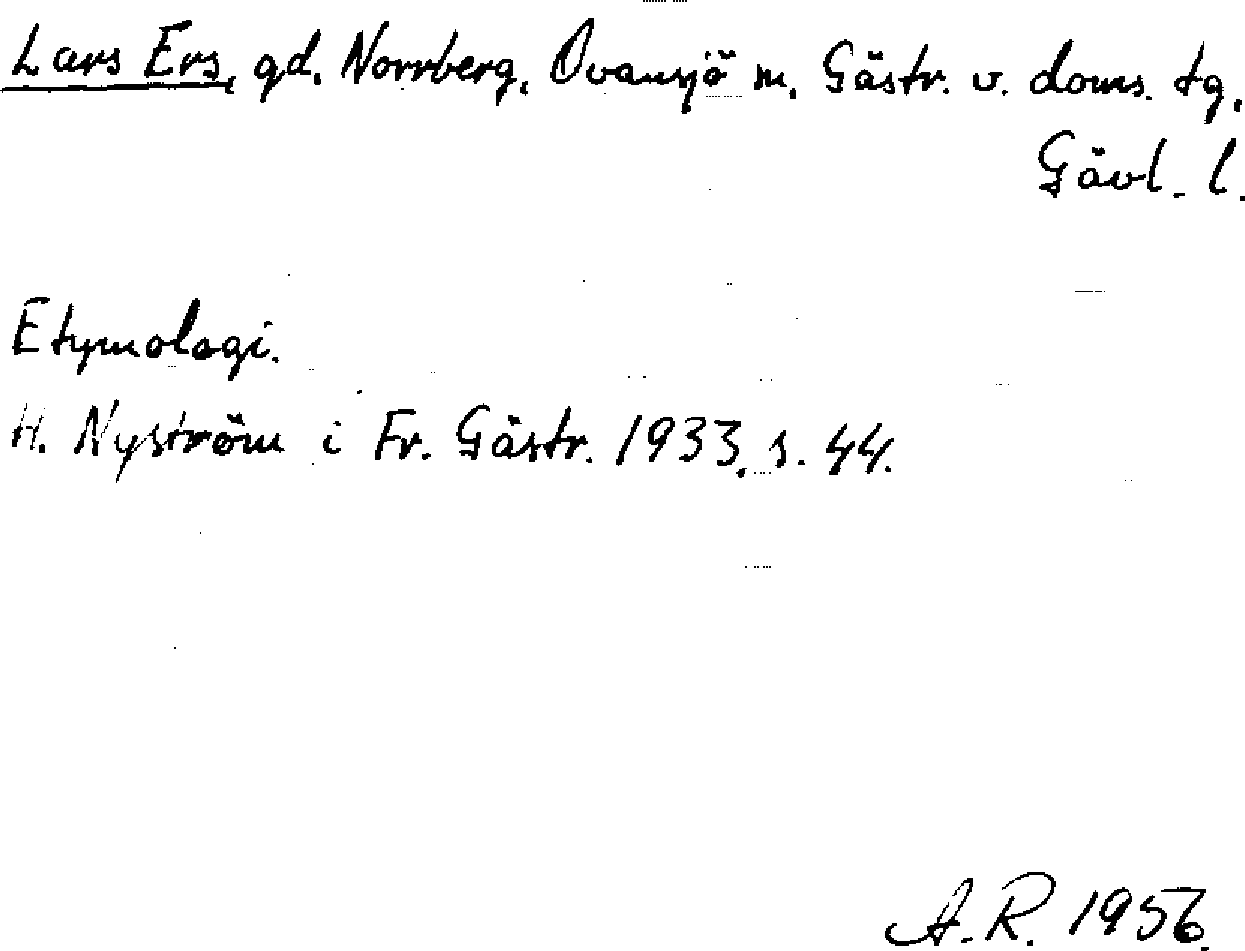 Lars Ers, gd. Norrberg, Ovansjö sn, Gästr. v. doms. tg,
Gävl. l.
Etymologi.
H. Nyström i Fr. Gästr. 1933, s. 44.
A.R. 1956.